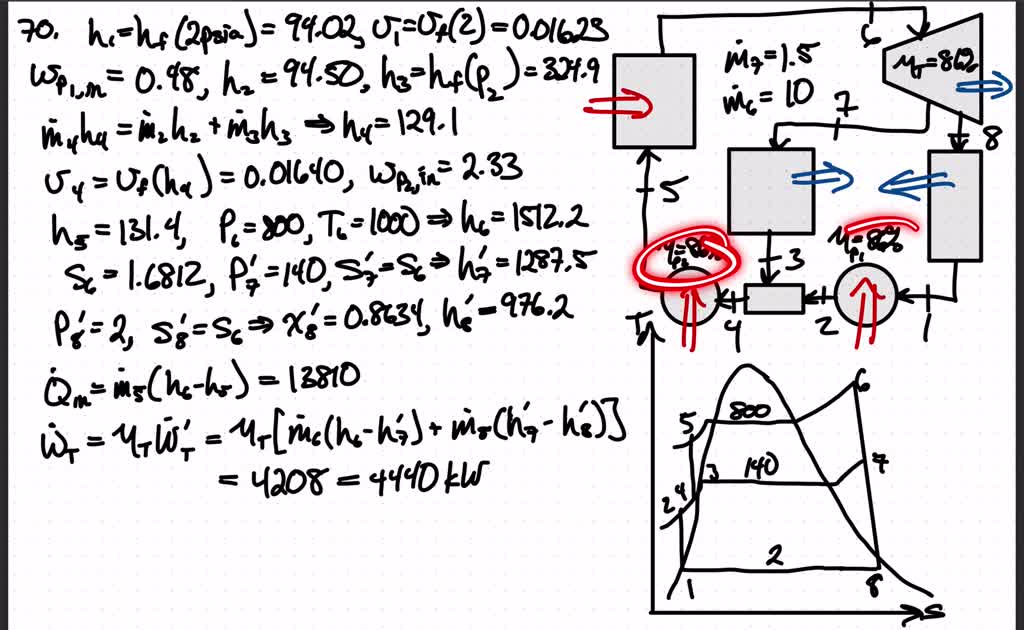 70. h₁=h_f(2psia)=94.02, υ₁=υ_f(2)=0.01623
w_P₁,in = 0.48, h₂=94.50, h₃=h_f(P₂)=324.9
ṁ₄h₄=ṁ₂h₂+ṁ₃h₃ ⇒ h₄=129.1
υ₄=υ_f(h₄)=0.01640, w_P₂,in=2.33
h₅=131.4, P₆=800, T₆=1000 ⇒ h₆=1512.2
s₆=1.6812, P₇'=140, s₇'=s₆ ⇒ h₇'=1287.5
P₈'=2, s₈'=s₆ ⇒ x₈'=0.8634, h₈'=976.2
Q̇_in=ṁ₅(h₆-h₅)=13810
Ẇ_T=η_TẆ_T'=η_T[ṁ₆(h₆-h₇')+ṁ₈(h₇'-h₈')]
=4208=4440kW
6
η_T=86%
ṁ₇=1.5
ṁ₆=10
7
8
5
3
η_P₂=86%
η_P₁=86%
4
2
1
T
6
800
5
140
7
3
2 4
2
1
8
s